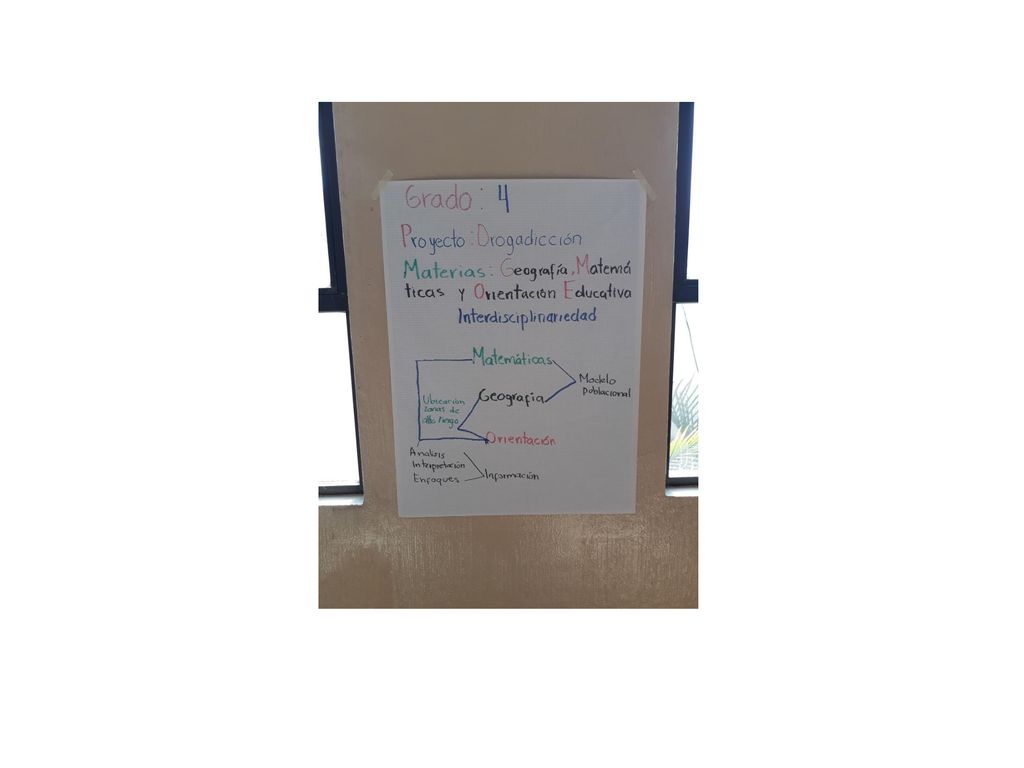 Grado: 4
Proyecto: Drogadicción
Materias: Geografía, Matemá
ticas y Orientación Educativa
Interdisciplinariedad
Matemáticas
Modelo
poblacional
Geografía
Ubicación
zonas de
alto riesgo
Orientación
Analisis
Interpretación
Enfoques
Información